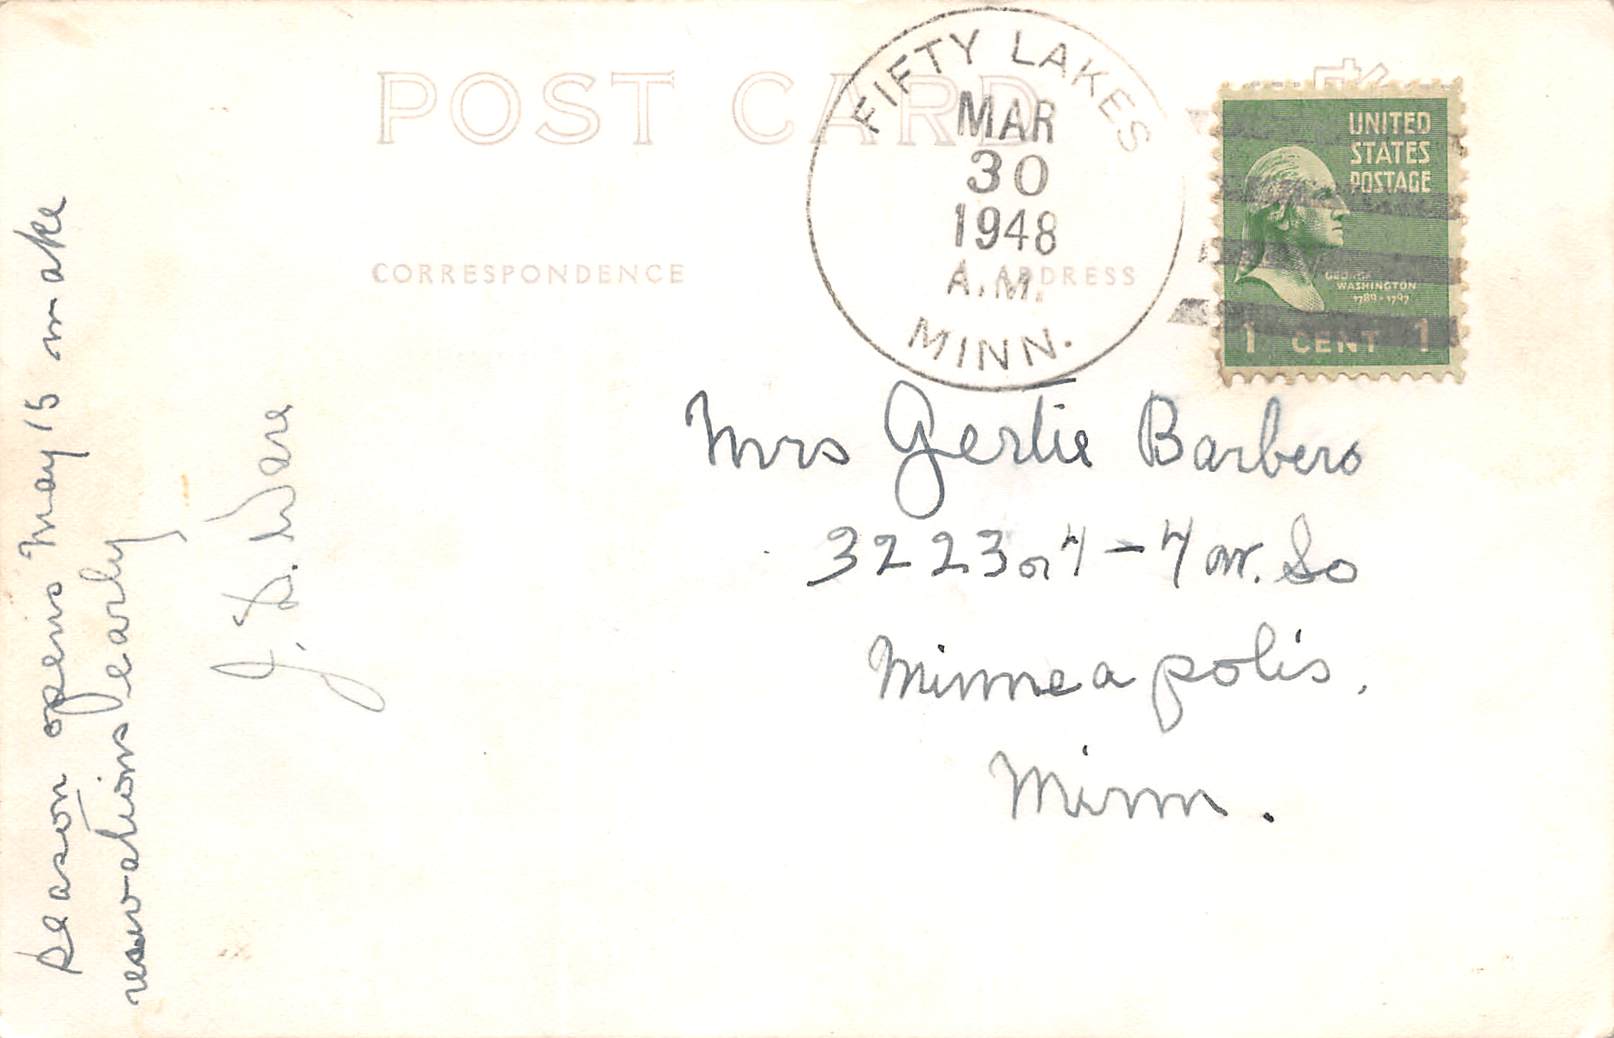 POST CARD
CORRESPONDENCE
ADDRESS
FIFTY LAKES
MAR
30
1948
A.M.
MINN.
UNITED
STATES
POSTAGE
GEORGE
WASHINGTON
1789-1797
1 CENT 1
Season opens May 15 make
reservations early
J. D. Ware
Mrs Gertie Barbero
3223
So
Minneapolis.
Minn.